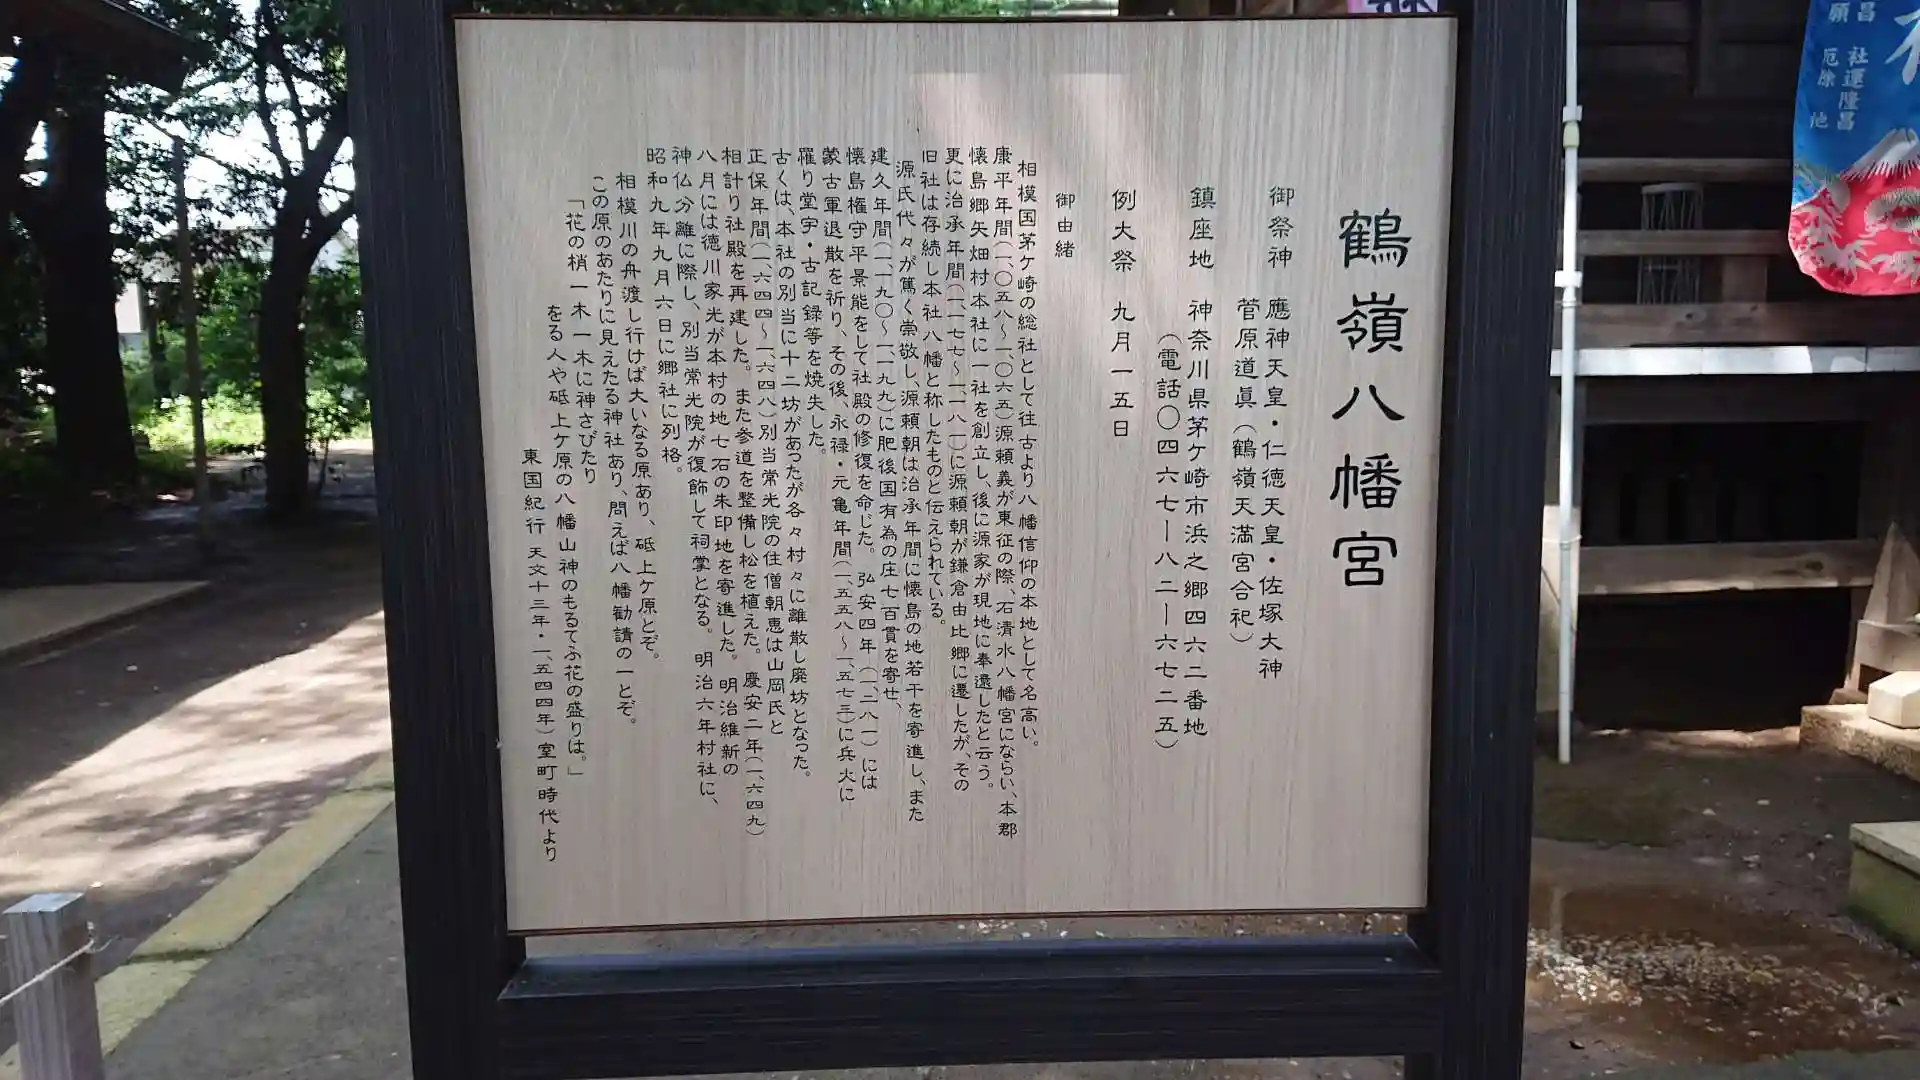 鶴嶺八幡宮
御祭神 應神天皇・仁徳天皇・佐塚大神
菅原道眞(鶴嶺天満宮合祀)
鎮座地 神奈川県茅ケ崎市浜之郷四六二番地
(電話〇四六七ー八二ー六七二五)
例大祭 九月一五日
御由緒
相模国茅ケ崎の総社として往古より八幡信仰の本地として名高い。
康平年間(一、〇五八～一、〇六五)源頼義が東征の際、石清水八幡宮にならい、本郡
懐島郷矢畑村本社に一社を創立し、後に源家が現地に奉遷したと云う。
更に治承年間(一一七七～一、一八一)に源頼朝が鎌倉由比郷に遷したが、その
旧社は存続し本社八幡と称したものと伝えられている。
源氏代々が篤く崇敬し、源頼朝は治承年間に懐島の地若干を寄進し、また
建久年間(一、一九〇～一、一九九)に肥後国有為の庄七百貫を寄せ、
懐島権守平景能をして社殿の修復を命じた。弘安四年(一、二八一)には
蒙古軍退散を祈り、その後、永禄・元亀年間(一、五五八～一、五七三)に兵火に
罹り堂宇・古記録等を焼失した。
古くは、本社の別当に十二坊があったが各々村々に離散し廃坊となった。
正保年間(一、六四四～一、六四八)別当常光院の住僧朝恵は山岡氏と
相計り社殿を再建した。また参道を整備し松を植えた。慶安二年(一、六四九)
八月には徳川家光が本村の地七石の朱印地を寄進した。明治維新の
神仏分離に際し、別当常光院が復飾して祠掌となる。明治六年村社に、
昭和九年九月六日に郷社に列格。
相模川の舟渡し行けば大いなる原あり、砥上ケ原とぞ。
この原のあたりに見えたる神社あり、問えば八幡勧請の一とぞ。
「花の梢一木一木に神さびたり
をる人や砥上ケ原の八幡山神のもるてふ花の盛りは。」
東国紀行 天文十三年・一、五四四年)室町時代より
社運隆昌
厄除